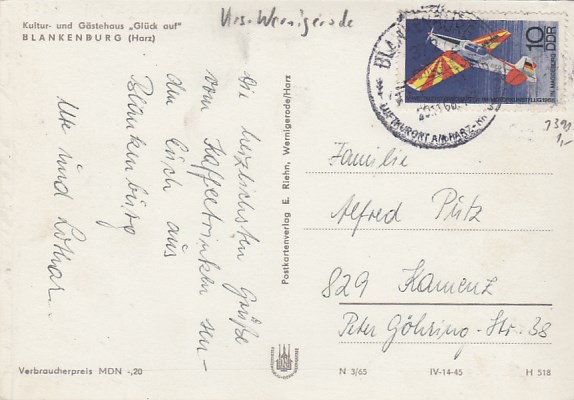 Kultur- und Gästehaus „Glück auf"
BLANKENBURG (Harz)
Krs. Wernigerode
10
DDR
IN MAGDEBURG
LUFTKURORT AM HARZ
1,-
Die herzlichsten Grüße
vom Kaffeetrinken sen-
den Euch aus
Blankenburg
Ute und Lothar
Postkartenverlag E. Riehn, Wernigerode/Harz
Familie
Alfred Pütz
829 Kamenz
Peter Göhring-Str. 38
Verbraucherpreis MDN -,20
N 3/65
IV-14-45
H 518